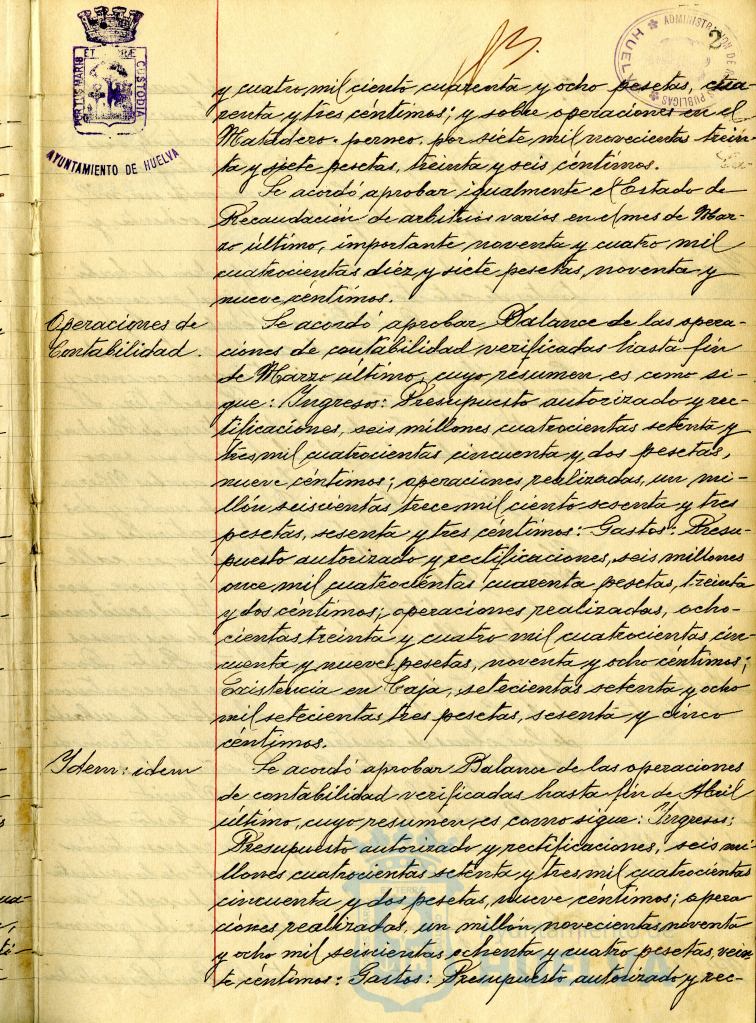 PORTUS MARIS ET TERRÆ CUSTODIA
AYUNTAMIENTO DE HUELVA
ADMINISTRACION DE
PUBLICAS
HUELVA
2
y cuatro mil ciento cuarenta y ocho pesetas, cua-
renta y tres céntimos; y sobre operaciones en el
Matadero perneo, por siete mil novecientas trein-
ta y siete pesetas, treinta y seis céntimos.
Se acordó aprobar igualmente el Estado de
Recaudación de arbitrios varios en el mes de Mar-
zo último, importante noventa y cuatro mil
cuatrocientas diéz y siete pesetas, noventa y
nueve céntimos.
Operaciones de
Contabilidad.
Se acordó aprobar Balance de las opera-
ciones de contabilidad verificadas hasta fin
de Marzo último, cuyo resumen es como si-
gue: Ingresos: Presupuesto autorizado y rec-
tificaciones, seis millones cuatrocientas setenta y
tres mil cuatrocientas cincuenta y dos pesetas,
nueve céntimos; operaciones realizadas, un mi-
llón seiscientas trece mil ciento sesenta y tres
pesetas, sesenta y tres céntimos: Gastos: Presu-
puesto autorizado y rectificaciones, seis millones
once mil cuatrocientas cuarenta pesetas, treinta
y dos céntimos; operaciones realizadas, ocho-
cientas treinta y cuatro mil cuatrocientas cin-
cuenta y nueve pesetas, noventa y ocho céntimos;
Existencia en Caja, setecientas setenta y ocho
mil setecientas tres pesetas, sesenta y cinco
céntimos.
Idem: idem
Se acordó aprobar Balance de las operaciones
de contabilidad verificadas hasta fin de Abril
último, cuyo resumen es como sigue: Ingresos:
Presupuesto autorizado y rectificaciones, seis mi-
llones cuatrocientas setenta y tres mil cuatrocientas
cincuenta y dos pesetas, nueve céntimos; opera-
ciones realizadas, un millón, novecientas noventa
y ocho mil seiscientas ochenta y cuatro pesetas, vein-
te céntimos: Gastos: Presupuesto autorizado y rec-